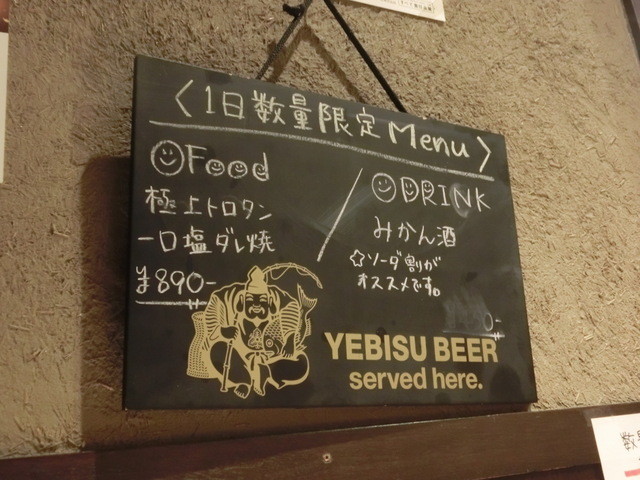 〈1日数量限定 Menu〉
Food
極上トロタン
一口塩ダレ焼
¥890-
DRINK
みかん酒
☆ソーダ割りが
オススメです。
YEBISU BEER
served here.